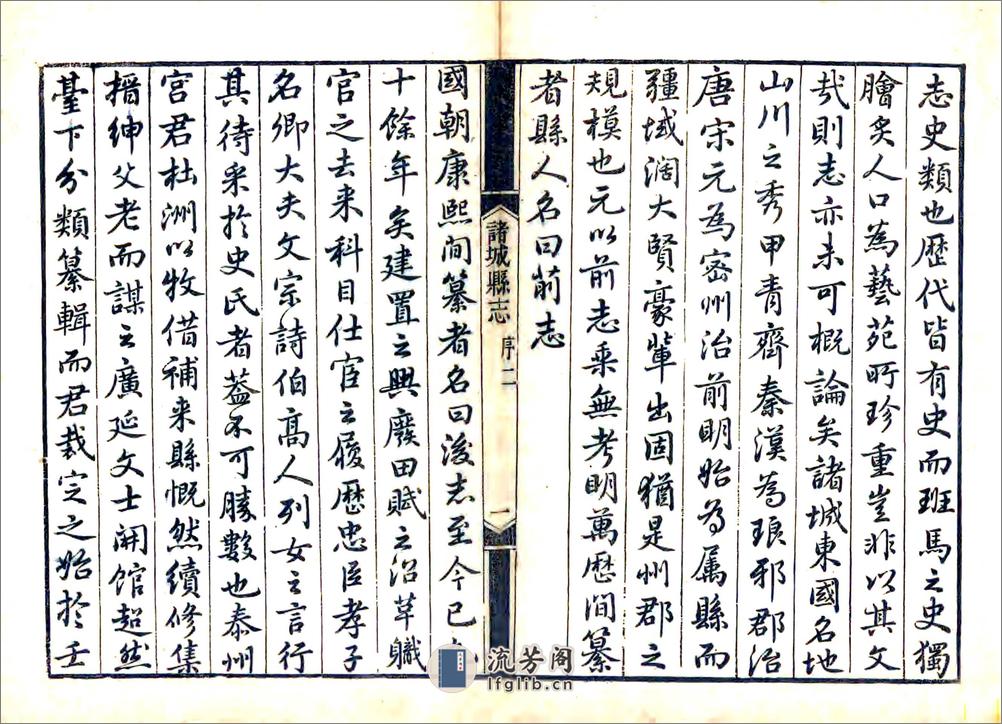 志史類也歷代皆有史而班馬之史獨
膾炙人口為藝苑所珍重豈非以其文
哉則志亦未可概論矣諸城東國名地
山川之秀甲青齊秦漢為琅邪郡治
唐宋元為密州治前明始為属縣而
疆域濶大賢豪輩出固猶是州郡之
規模也元以前志乘無考明萬歷間纂
者縣人名曰前志
諸城縣志 序二 一
國朝康熙間纂者名曰後志至今已
十餘年矣建置之興廢田賦之沿革職
官之去来科目仕宦之履歷忠臣孝子
名卿大夫文宗詩伯高人列女之言行
其待采於史氏者葢不可勝數也泰州
宮君杜洲以牧借補来縣慨然續修集
搢紳父老而謀之廣延文士開館超然
臺下分類纂輯而君裁定之始於壬
流芳阁
lfglib.cn